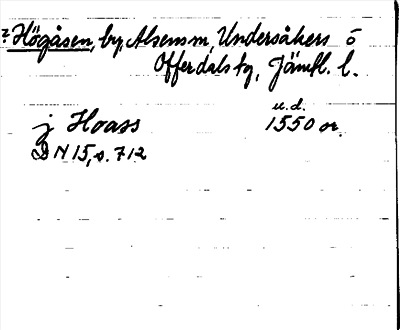 ?Högåsen, by, Alsens sn, Undersåkers o
Offerdals tg, Jämtl. l.
u.d.
j Hoass 1550 or.
DN 15, s. 712